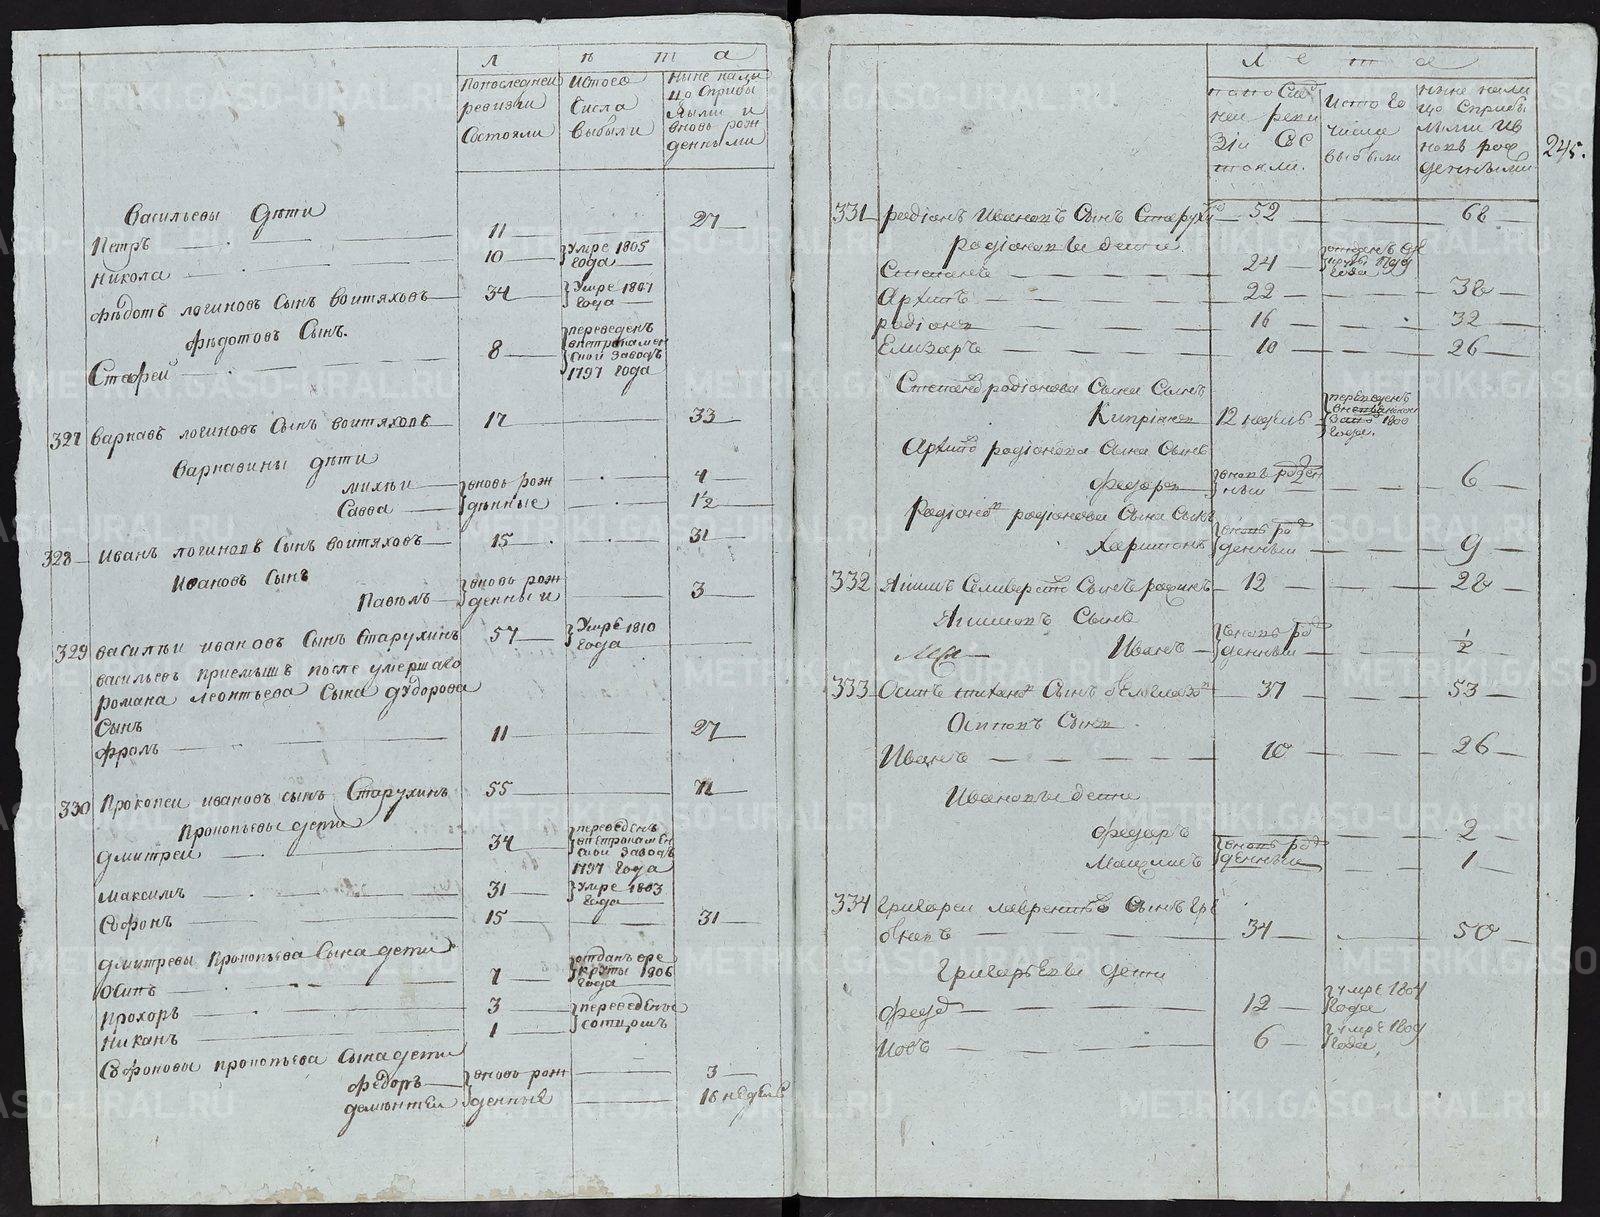 л ѣ т а
Попоследней ревизии Состояли
Истого Числа выбыли
Ныне нали цо Сприбы лыми и вновь рож денными
Васильевы дѣти 27
Петръ 11
Никола 10 Умре 1805 года
Фѣдотъ логиновъ Сынъ воитяховъ 34 Умре 1807 года
Фѣдотовъ Сынъ.
Стафей 8 переведенъ впетрокамен ской заводъ 1797 года
327 Варнавъ логиновъ Сынъ воитяховъ 17 33
Варнавины дѣти
михѣи вновь рож 4
Савва дѣнные 1/2
328 Иванъ логиновъ Сынъ воитяховъ 15 31
Ивановъ Сынъ
Павѣлъ вновь рож денныи 3
329 Василѣи ивановъ Сынъ Старухинъ 57 Умре 1810 года
васильевъ приемышъ после умершаго
романа леонтьева Сына дудорова
Сынъ
Фролъ 11 27
330 Прокопеи ивановъ сынъ Старухинъ 55 71
Прокопьевы дети
дмитреи 34 переведенъ впетрокамен скои заводъ 1797 года
максимъ 31 умре 1803 года
Софонъ 15 31
дмитревы Прокопьева Сына дети
Осипъ 7 отданъ вре круты 1806 года
Прохоръ 3 переведены
Никанъ 1 сотцомъ
Софоновы прокопьева Сына дети
Федоръ вновь рож 3
дементеи денные 16 недель
Л е т а
попослед неи реви зіи Сос тояли.
Истого числа выбыли
ныне нали цо Сприбы лыми ив новь рож денными
245.
331 радіонъ Ивановъ Сынъ Старухинъ 52 68
радіоновы дети
Степанъ 24 отданъ врекруты года
Архипъ 22 38
радіонъ 16 32
Елизаръ 10 26
Степана радіонова Сына Сынъ
Кипріянъ 12 недель переведенъ заводъ 1800 года.
Архипа радіонова Сына Сынъ
Федоръ вновь рожден ныи 6
Радіона радіонова Сына Сынъ
Харитонъ вновь рож денныи 9
332 Селиверстовъ Сынъ 12 28
Сынъ
Иванъ вновь рож денныи 1/2
333 Осипъ Сынъ 37 53
Осиповъ Сынъ
Иванъ 10 26
Ивановы дети
Федоръ вновь рож 2
денныи 1
334 Григореи лаврентьевъ Сынъ Гре
бневъ 34 50
Григорьевы дети
Федотъ 12 умре 1804 года
Иовъ 6 умре 1809 года
METRIKI.GASO-URAL.RU